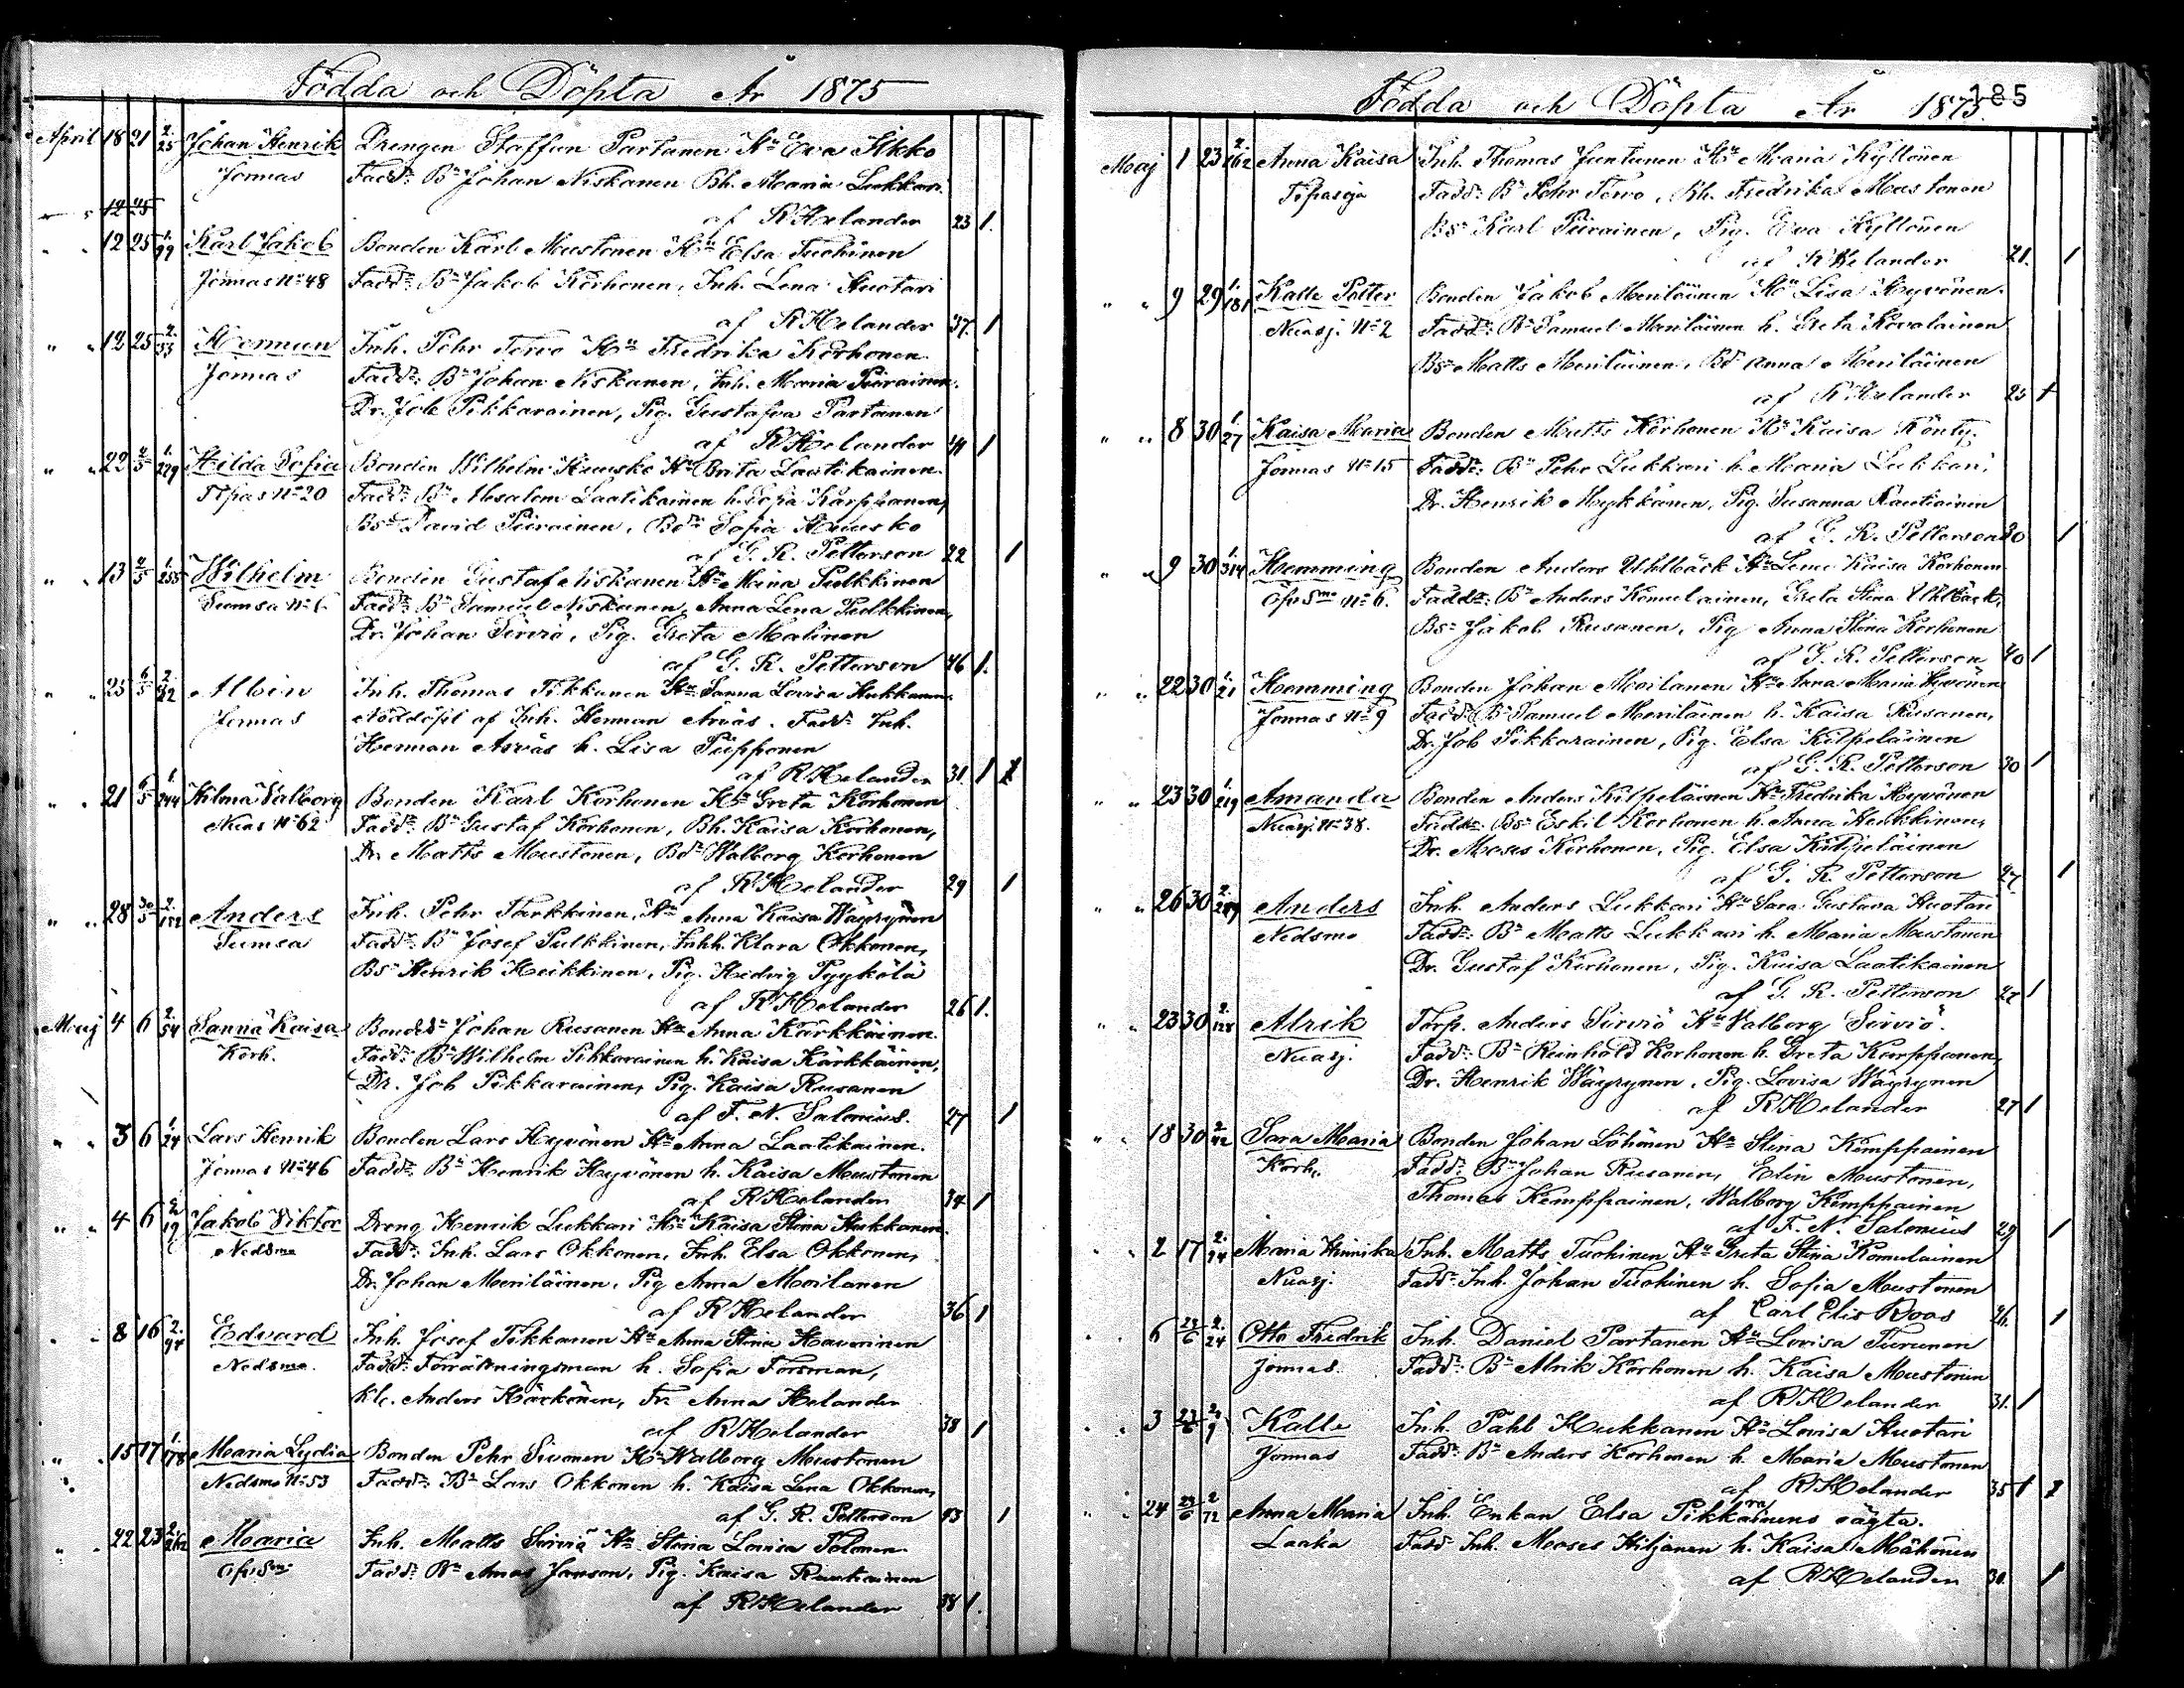 Födda och Döpta År 1875
April 18 21 2/25 Johan Henrik Drengen Staffan Partanen H:u Eva Sikko
Jormas Fadd: B:n Johan Niskanen Bh. Maria Lukkari
12 25 af R Helander 23 1.
" 12 25 1/99 Karl Jakob Bonden Karl Mustonen H:u Elsa Tuohinen
Jormas N:o 48 Fadd: B:n Jakob Korhonen, Inh. Lena Huotari
af R Helander 37. 1
" " 12 25 2/33 Herman Inh. Pehr Tervo H:u Fredrika Korhonen
Jormas Fadd: B:n Johan Niskanen, Inh. Maria Piirainen.
Dr. Job Pikkarainen, Pig. Gustafva Partanen
af R Helander 41 1
" " 22 2/5 1/229 Hilda Sofia Bonden Wilhelm Huusko H:u Brita Laatikainen.
Tipas N:o 20 Fadd: B:n Absalom Laatikainen h. Sofia Karppanen,
Bs: David Piirainen, Bd: Sofia Huusko
af G. R. Petterson 22 1
" " 13 2/5 1/255 Wilhelm Bonden Gustaf Niskanen H:u Maria Pulkkinen
Sumsa N:o 6 Fadd: B:n Samuel Niskanen, Anna Lena Pulkkinen,
Dr. Johan Sirviö, Pig. Greta Malinen
af G. R. Petterson 46 1.
" " 25 6/5 Albin Inh. Thomas Tikkanen H:u Sanna Lovisa Hukkanen
Jormas Nöddöpt af Inh. Herman Arväs. Fadd: Inh.
Herman Arväs h. Lisa Piipponen
af R Helander 31. 1
" " 21 6/5 1/244 Hilma Valborg Bonden Karl Korhonen H:u Greta Korhonen
Nuas N:o 62 Fadd: B:n Gustaf Korhonen, Bh. Kaisa Korhonen,
Dr. Matts Mustonen, Bd: Walborg Korhonen
af R Helander 29 1
" " 28 30/5 2/152 Anders Inh. Pehr Tarkkinen, H:u Anna Kaisa Wäyrynen
Sumsa Fadd: B:n Josef Pulkkinen, Inhh. Klara Okkonen,
Bs: Henrik Heikkinen, Pig. Hedvig Pyykölä
af R Helander 26 1.
Maj 4 6 2/54 Sanna Kaisa Bondes: Johan Rusanen H:u Anna Kärkkäinen.
Korh. Fadd: B:n Wilhelm Pikkarainen h. Kaisa Kärkkäinen,
Dr. Job Pikkarainen, Pig. Kaisa Rusanen
af F. N. Salonius. 27 1
" " 3 6 1/24 Lars Henrik Bonden Lars Hyvönen H:u Anna Laatikainen.
Jormas N:o 46 Fadd: B:n Henrik Hyvönen h. Kaisa Mustonen
af R Helander 34 1
" " 4 6 2/19 Jakob Viktor Dreng Henrik Lukkari H:u Kaisa Stina Hukkanen
Nedsmo Fadd: Inh. Lars Okkonen, Inh. Elsa Okkonen,
Dr. Johan Meriläinen, Pig Anna Moilanen
af R Helander 36 1
" " 8 16 2/94 Edvard Inh. Josef Tikkanen H:u Anna Stina Haverinen
Nedsmo. Fadd: Forrättningsman h. Sofia Forsman,
Kl. Anders Härkönen, Fr. Anna Helander
af R Helander 38 1
" " 15 17 1/178 Maria Lydia Bonden Pehr Sivonen H:u Walborg Mustonen
Nedsmo N:o 53 Fadd: B:n Lars Okkonen h. Kaisa Lena Okkonen,
af G. R. Petterson 43 1
" " 22 23 2/262 Maria Inh. Matts Sirviö H:u Stina Lovisa Tolonen
Öfv Smo Fadd: B:n Amos Janson, Pig. Kaisa Rautiainen
af R Helander 38 1.
Födda och Döpta År 1875.
185
Maj 1 23 2/162 Anna Kaisa Inh. Thomas Juntunen H:u Maria Kyllönen
Tipasoja Fadd: B:n Pehr Tervo, Bh. Fredrika Mustonen
Bs: Karl Piirainen, Pig. Eva Kyllönen
af R Helander 21. 1
" " 9 29 1/181 Kalle Petter Bonden Jakob Meriläinen H:u Lisa Hyvönen.
Nuasj. N:o 2 Fadd: B:n Samuel Meriläinen h. Greta Kovalainen
Bs: Matts Meriläinen, Bd: Anna Meriläinen
af R Helander 25 1
" " 8 30 1/27 Kaisa Maria Bonden Matts Korhonen H:u Kaisa Könty.
Jormas N:o 15 Fadd: B:n Pehr Lukkari h. Maria Lukkari,
Dr. Henrik Mykkänen, Pig. Susanna Rautiainen
af G. R. Petterson 30 1
" " 9 30 1/314 Hemming Bonden Anders Uhlbäck H:u Lena Kaisa Korhonen
Öfv Smo N:o 6. Fadd: B:n Anders Komulainen, Greta Stina Uhlbäck,
Bs: Jakob Rusanen, Pig Anna Stina Korhonen
af G. R. Petterson 40 1
" " 22 30 1/21 Hemming Bonden Johan Moilanen H:u Anna Maria Hyvönen
Jormas N:o 9 Fadd: B:n Samuel Meriläinen h. Kaisa Rusanen,
Dr. Job Pikkarainen, Pig. Elsa Kilpeläinen
af G. R. Petterson 30 1
" " 23 30 1/219 Amanda Bonden Anders Kilpeläinen H:u Fredrika Hyvönen
Nuasj. N:o 38. Fadd: Bs: Eskil Korhonen h. Anna Heikkinen,
Dr. Moses Korhonen, Pig. Elsa Kilpeläinen
af G. R. Petterson 27 1
" " 26 30 2/209 Anders Inh. Anders Lukkari H:u Sara Gustava Huotari
Nedsmo Fadd: B:n Matts Lukkari h. Maria Mustonen
Dr. Gustaf Korhonen, Pig. Kaisa Laatikainen
af G. R. Petterson 22 1
" " 23 30 2/128 Alrik Torp. Anders Sirviö H:u Valborg Sirviö.
Nuasj. Fadd: B:n Reinhold Korhonen h. Greta Karppanen,
Dr. Henrik Wäyrynen, Pig. Lovisa Wäyrynen
af R Helander 27 1
" " 18 30 2/42 Sara Maria Bonden Johan Löhönen H:u Stina Kemppainen
Korh. Fadd: B:n Johan Rusanen, Elin Mustonen,
Thomas Kemppainen, Walborg Kemppainen
af F. N. Salonius 29 1
" " 2 17 2/24 Maria Hinrika Inh. Matts Tuohinen H:u Greta Stina Komulainen
Nuasj. Fadd: Inh. Johan Tuohinen h. Sofia Mustonen
af Carl Elis Roos 26. 1
" 6 24/6 2/24 Otto Fredrik Inh. Daniel Partanen H:u Lovisa Turunen
Jormas. Fadd: B:n Alrik Korhonen h. Kaisa Mustonen
af R Helander 31. 1
" " 3 24/6 2/9 Kalle Inh. Pahl Hukkanen H:u Lovisa Huotari
Jormas Fadd: B:n Anders Korhonen h. Maria Mustonen
af R Helander 35 1
" " 24 24/6 2/72 Anna Maria Inh. Enkan Elsa Pikkarainens oägta.
Laaka Fadd Inh. Moses Kiljanen h. Kaisa Mähönen
af R Helander 30. 1